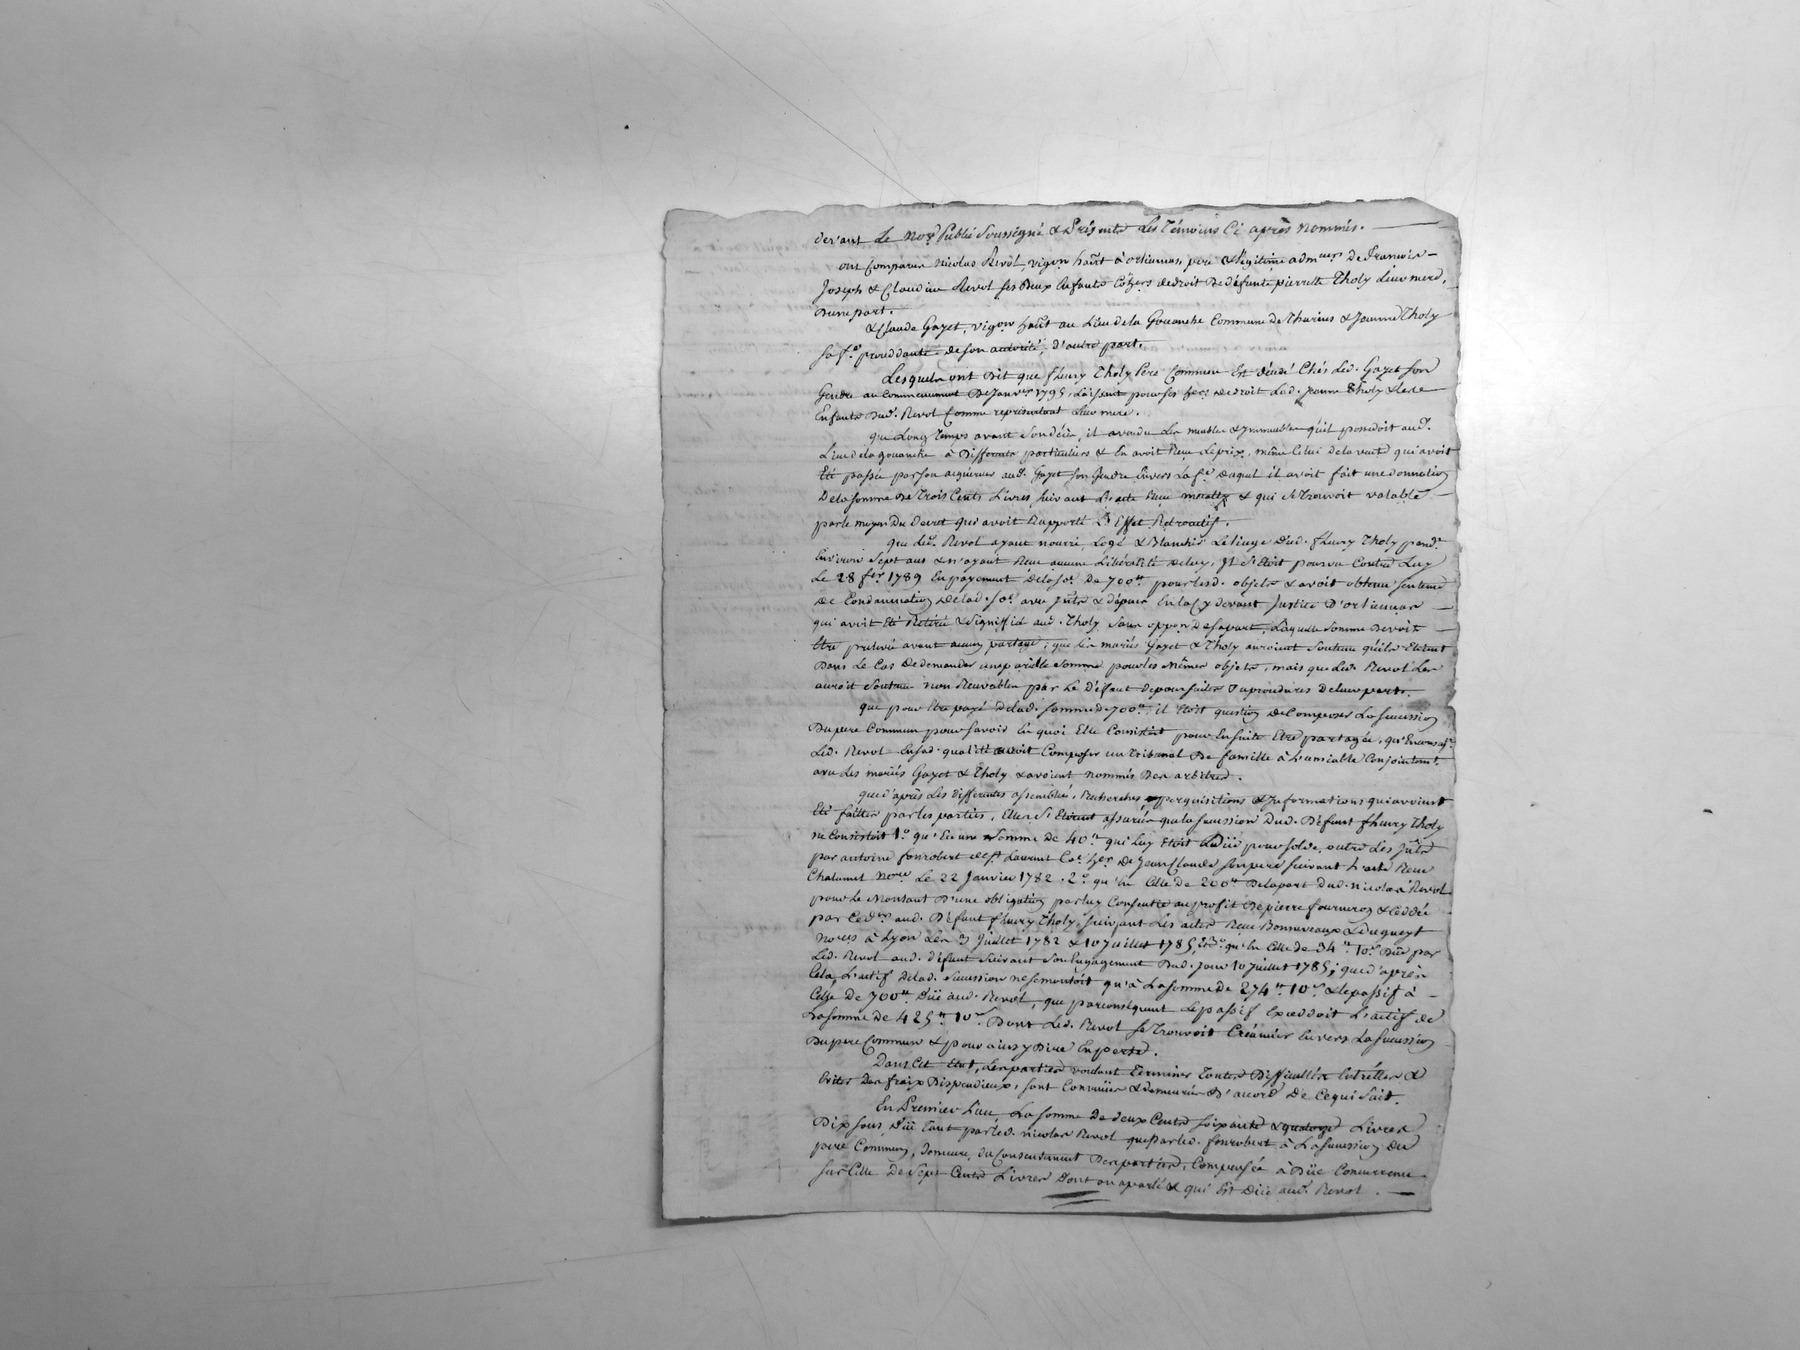 devant Le nore Public Soussigné & Présents Les Témoins Ci après nommés.
ont Comparu nicolas Revol, vigon habt à orlienas, pere & légitime admeur De François-
Joseph & Claudine Revol ses Deux Enfants Cohers de droit De défunte pierrette Tholy Leur mere,
D'une part.
& Claude Gayet, vigon habt au Lieu de la Gouanche Commune de Thurins & Jeanne Tholy
sa fe procédante de son autorité, d'autre part.
Lesquels ont Dit que fleury Tholy Pere Commun Est décédé Chés Led. Gayet son
Gendre au Commencement De Janver 1795, Laissant pour ses hers de droit Lad. Jeanne Tholy & Les
Enfants Dud. Revol Comme représentant Leur mere.
que Long Temps avant son décès, il a vendu Les meubles & Immeubles qu'il possedoit aud.
Lieu de la gouanche à Differents particuliers & En avoit Reçu Le prix, même Celui de la vente qui avoit
Eté passée par son acquereur aud. Gayet son Gendre Envers La fe Duquel il avoit fait une donnation
De la somme De Trois Cents Livres suivant L'acte Reçu & qui se Trouvoit valable
par le moyen Du Decret qui avoit Rapporté L'Effet Retroactif.
que Led. Revol ayant nourri, Logé & Blanchi Le linge Dud. fleury Tholy pendt
Environ Sept ans & n'ayant Reçu aucune Libéralité de luy, Il s'Etoit pourvu Contre Luy
Le 28 fer 1789 En payement de la se De 700tt pour lesd. objets & avoit obtenu sentence
De Condamnation de lad. se avec Ints & dépens En la Cy devant Justice D'orlienas
qui avoit Eté Retirée & Signiffié aud. Tholy sans oppon de sa part, Laquelle somme Devoit
Etre prelevée avant aucun partage; que Les mariés Gayet & Tholy auroient soutenu qu'ils Etoient
Dans Le Cas De demander une pareille Somme pour les Mêmes objets, mais que Led. Revol Les
auroit Soutenu non Recevables par Le Défaut de poursuites & procédures De leur part.
que pour Etre payé De lad. somme de 700tt, il Etoit question De Composer La succession
Du pere Commun pour savoir En quoi Elle Consistoit pour Ensuite Etre partagée, qu'En
Led. Revol En sad. qualité avoit Composer un Tribunal De famille à L'amiable Conjointemt
avec Les mariés Gayet & Tholy & avoient nommés Des arbitres.
que d'après Les differentes assemblées, Recherches, perquisitions & Informations qui avoient
Eté faittes par les parties, Elles s'Etoient assurées que la succession Dud. Défunt fleury Tholy
ne Consistoit 1o qu'En une Somme de 40tt qui Luy Etoit Düe pour solde, outre Les Ints
par antoine fonrobert & Laurent Cohers De Jean Claude son pere suivant L'acte Reçu
Chalamel Nore Le 22 Janvier 1782. 2o qu'En Celle de 200tt De la part Dud. nicolas Revol
pour Le Montant D'une obligation par luy Consentie au profit De pierre fourneron & Cedée
par Ce der aud. Défunt fleury Tholy, suivant Les actes Reçu Bonnevaux & Dugueyt
Nores à Lyon Les 3 Juillet 1782 & 10 Juillet 1785, & 3o qu'En Celle de 34tt 10s Düe par
Led. Revol aud. défunt suivant son Engagement Dud. Jour 10 Juillet 1785; que d'après
Cela L'actif De lad. succession ne se montoit qu'à La somme de 274tt 10s & Le passif à
Celle De 700tt Düe aud. Revol, que par conséquent Le passif Excedoit L'actif de
La somme de 425tt 10s Dont Led. Revol se Trouvoit Créancier Envers La succession
Du pere Commun & pour ainsy Dire En perte.
Dans Cet Etat, Les parties voulant Terminer Toutes Difficultés Entr'Elles &
Eviter Des fraix Dispendieux, sont Convenües & demeurées D'accord De Ce qui suit.
En Premier Lieu La somme De deux Cents soixante & quatorze Livres
Dix sous Düe tant par led. nicolas Revol que par led. fonrobert à La succession du
pere Commun, demeure, du Consentement Des parties, Compensée à Düe Concurrence
sur Celle De Sept Cents Livres Dont on a parlé & qui Est Düe aud. Revol.